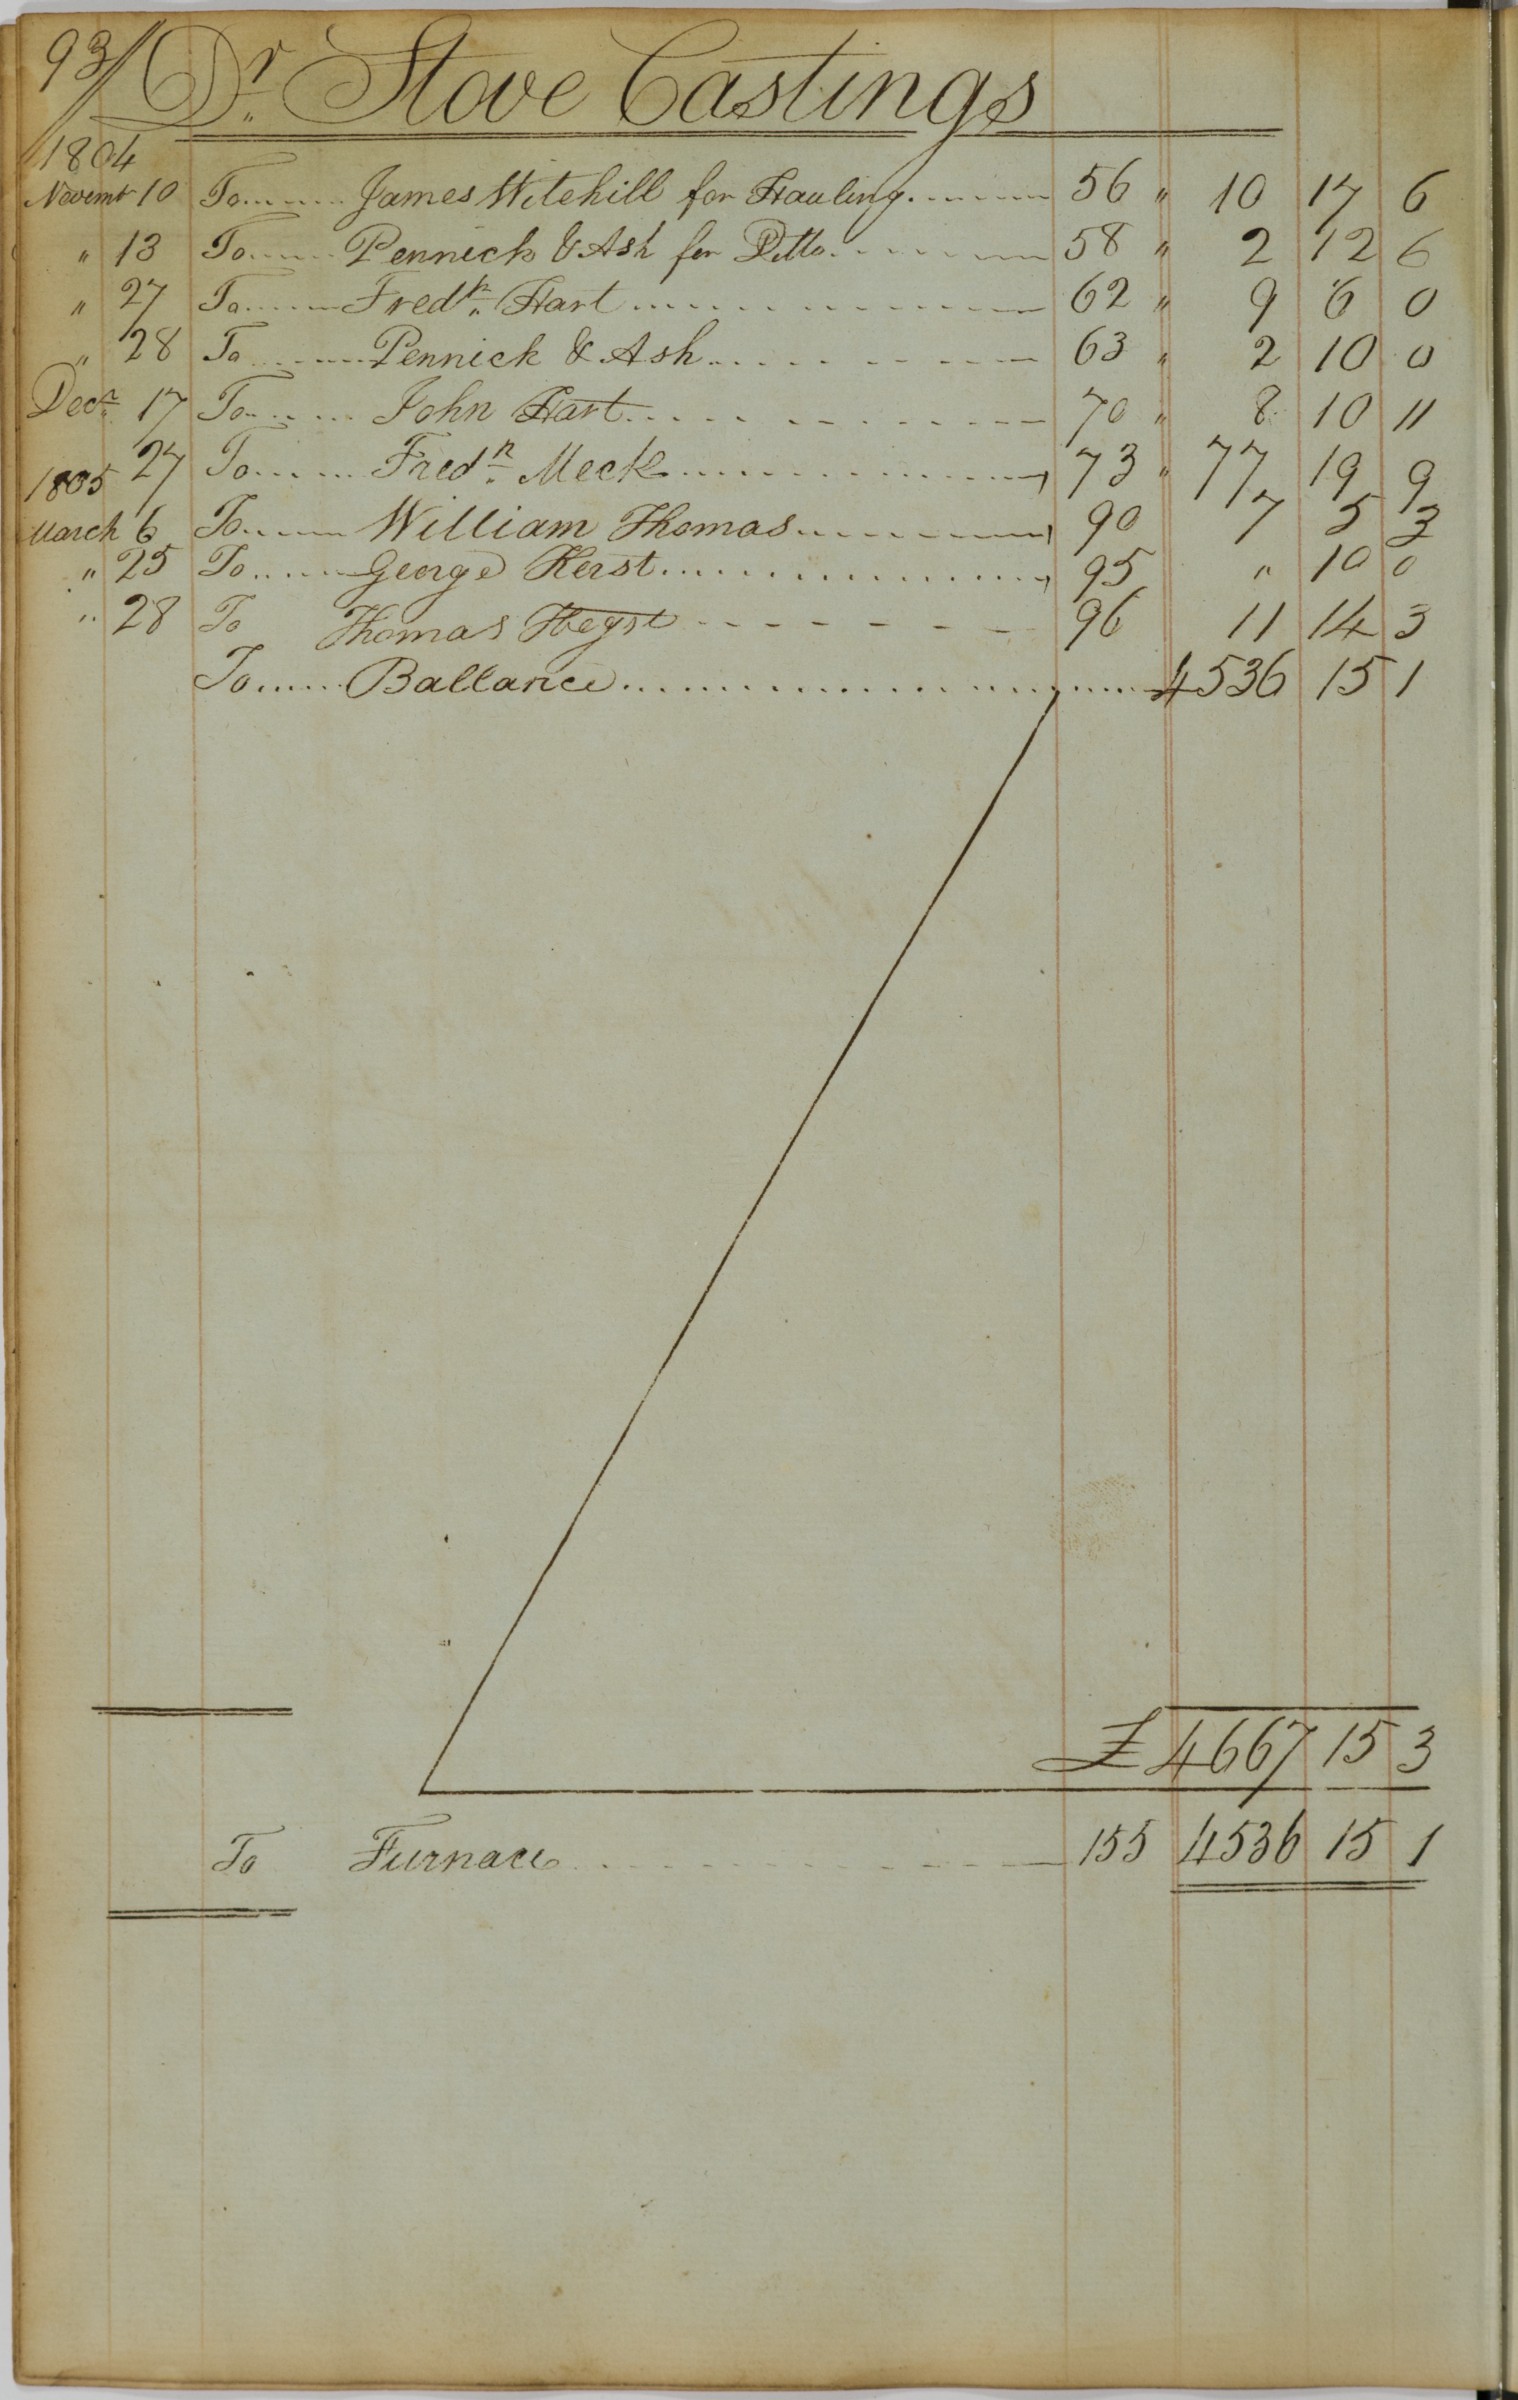 93 Dr Stove Castings
1804
Novemr 10 To James Witehill for Hauling 56 " 10 17 6
" 13 To Pennick & Ash for Ditto 58 " 2 12 6
" 27 To Fredk. Hart 62 " 9 6 0
" 28 To Pennick & Ash 63 " 2 10 0
Decr 17 To John Hart 70 " 8 10 11
27 To Fredk. Meck 73 " 77 19 9
1805
March 6 To William Thomas 90 7 5 3
" 25 To George Kerst 95 " 10 0
" 28 To Thomas Hegst 96 11 14 3
To Ballance 4536 15 1
£ 4667 15 3
To Furnace 155 4536 15 1